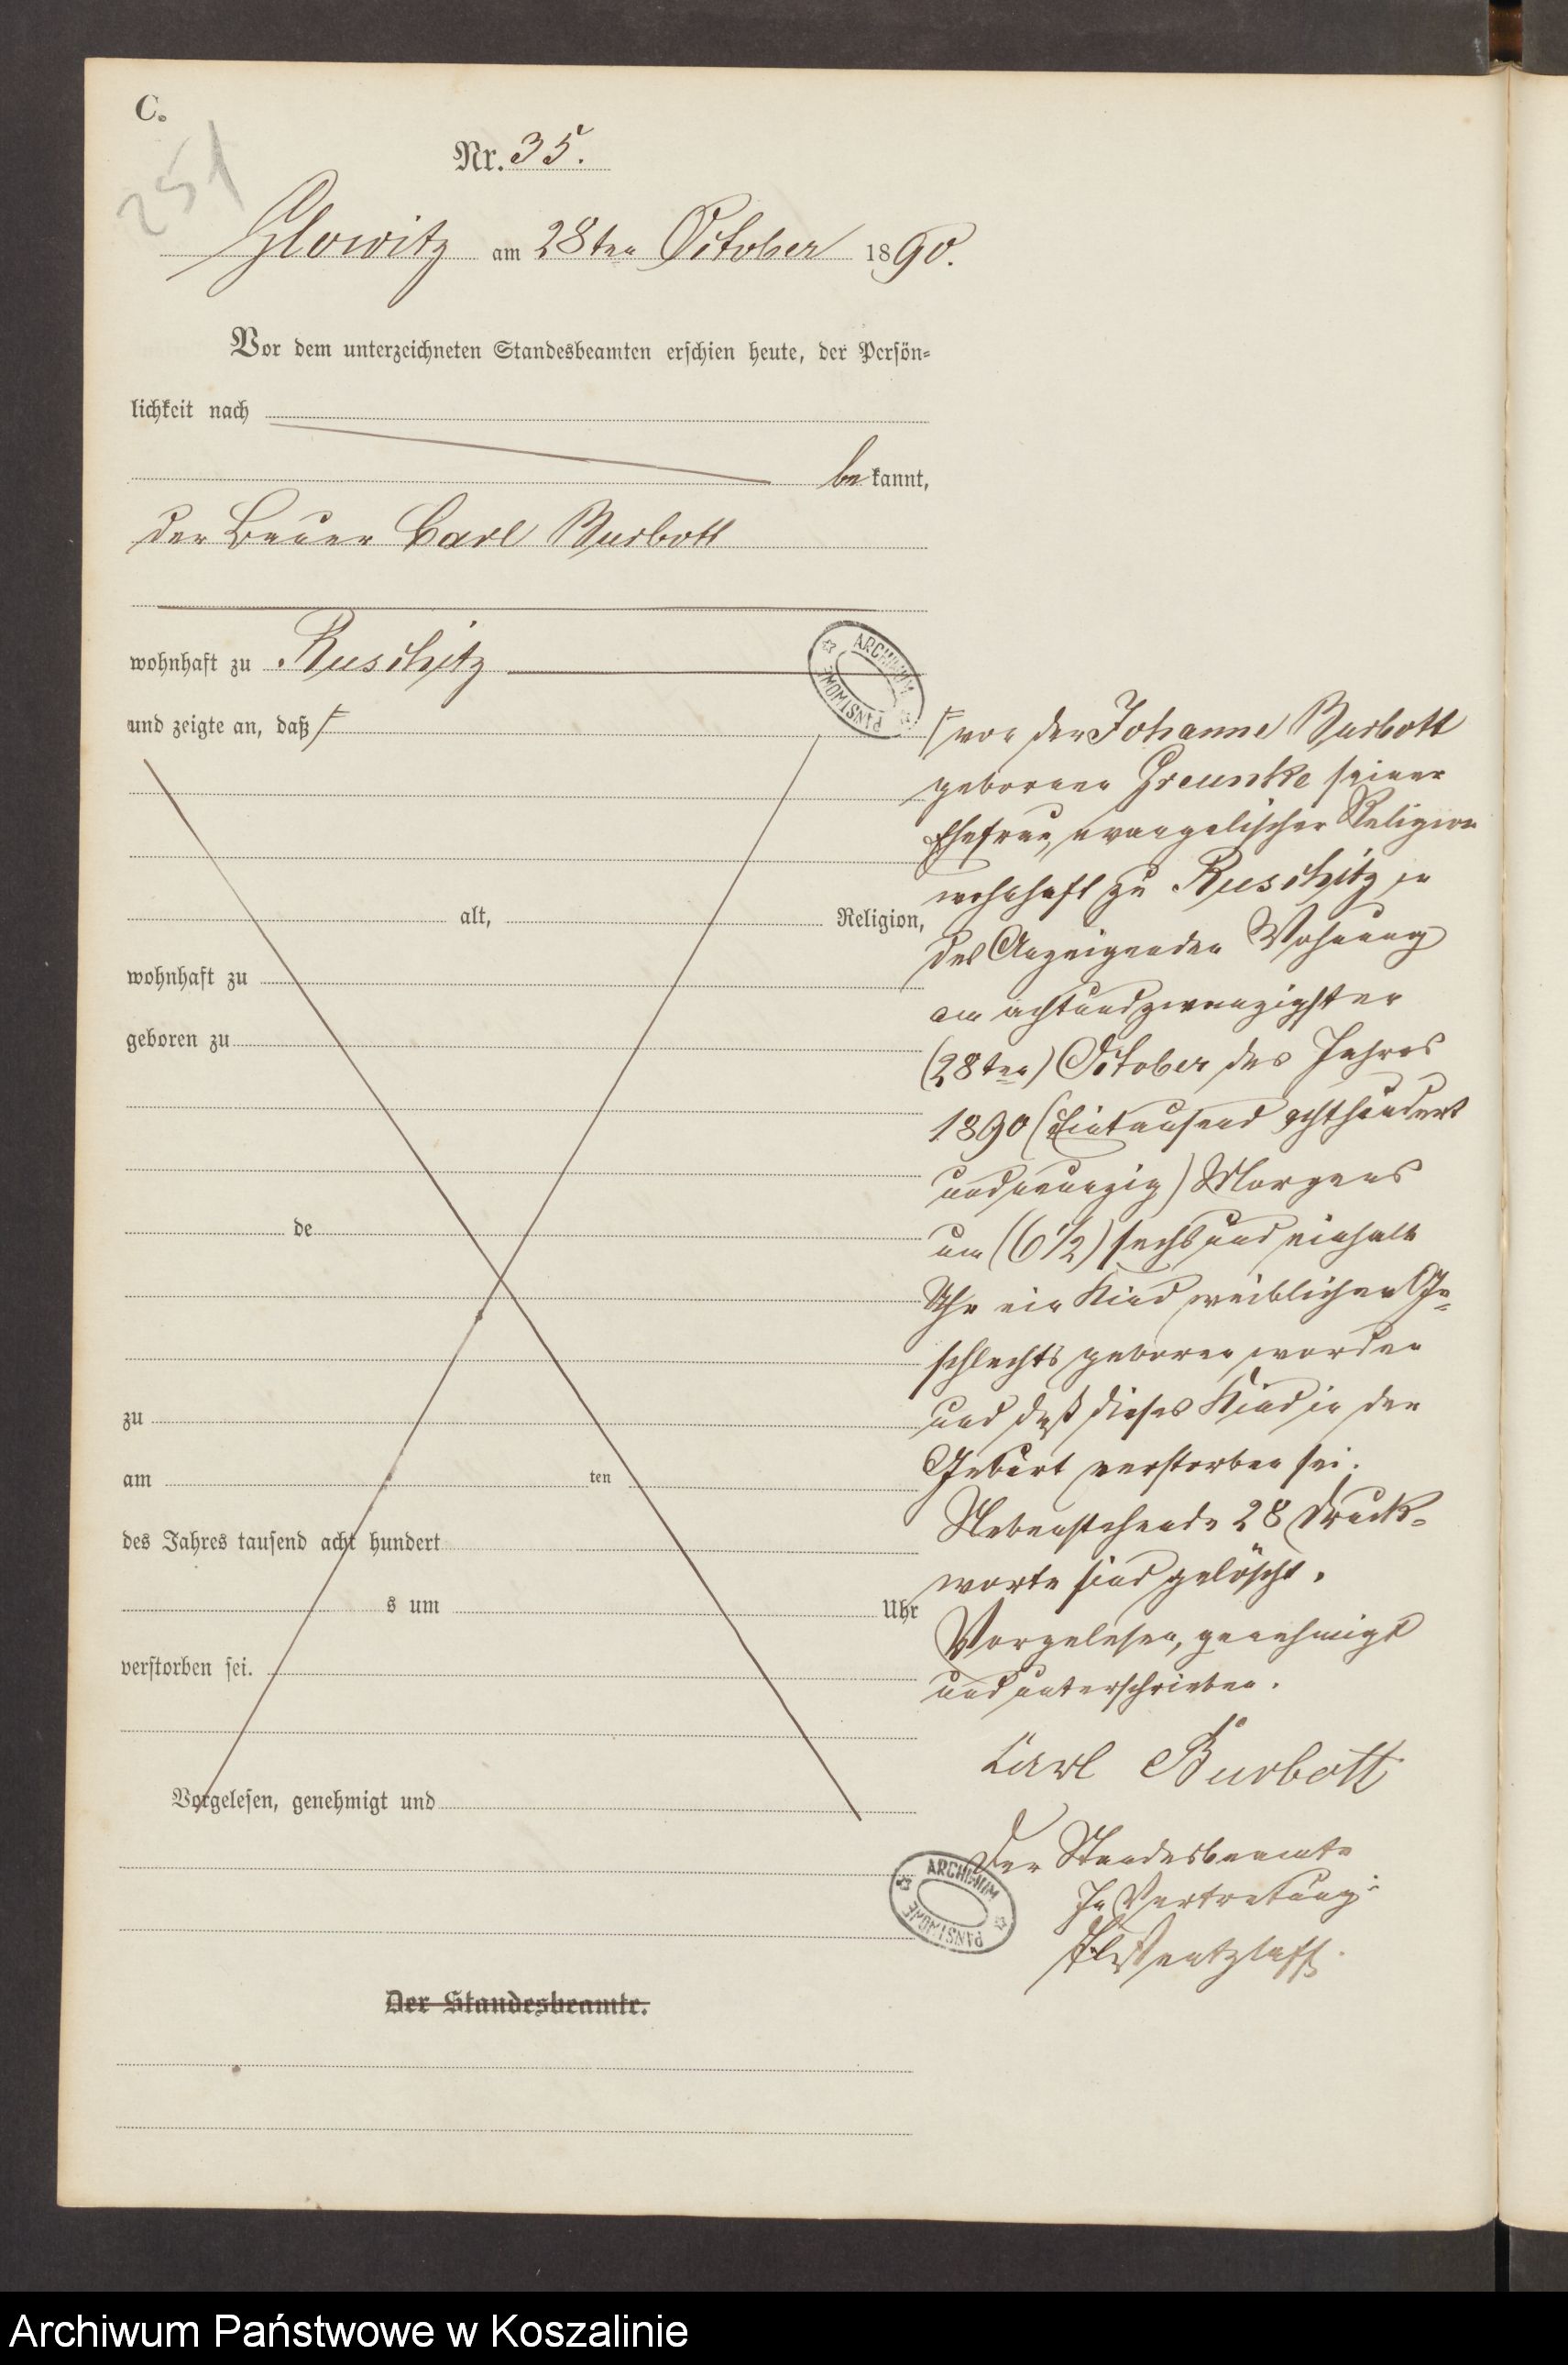 C.
251
Nr. 35.
Glowitz am 28ten October 1890.
Vor dem unterzeichneten Standesbeamten erschien heute, der Persön=
lichkeit nach
be kannt,
der Bauer Carl Burbott
wohnhaft zu Ruschitz
und zeigte an, daß
alt, Religion,
wohnhaft zu
geboren zu
de
zu
am ten
des Jahres tausend acht hundert
s um Uhr
verstorben sei.
Vorgelesen, genehmigt und
Der Standesbeamte.
von der Johanne Burbott
geborenen Greunke seiner
Ehefrau, evangelischer Religion
wohnhaft zu Ruschitz in
des Anzeigenden Wohnung
am achtundzwanzigsten
(28ten) October des Jahres
1890 (Eintausend achthundert
undneunzig) Morgens
um (6 1/2) sechs und einhalb
Uhr ein Kind weiblichen Ge=
schlechts geboren worden
und daß dieses Kind in der
Geburt verstorben sei.
Nebenstehende 28 Druck=
worte sind gelöscht.
Vorgelesen, genehmigt
und unterschrieben.
Carl Burbott
Der Standesbeamte
In Vertretung:
ARCHIWUM PAŃSTWOWE
ARCHIWUM PAŃSTWOWE
Archiwum Państwowe w Koszalinie